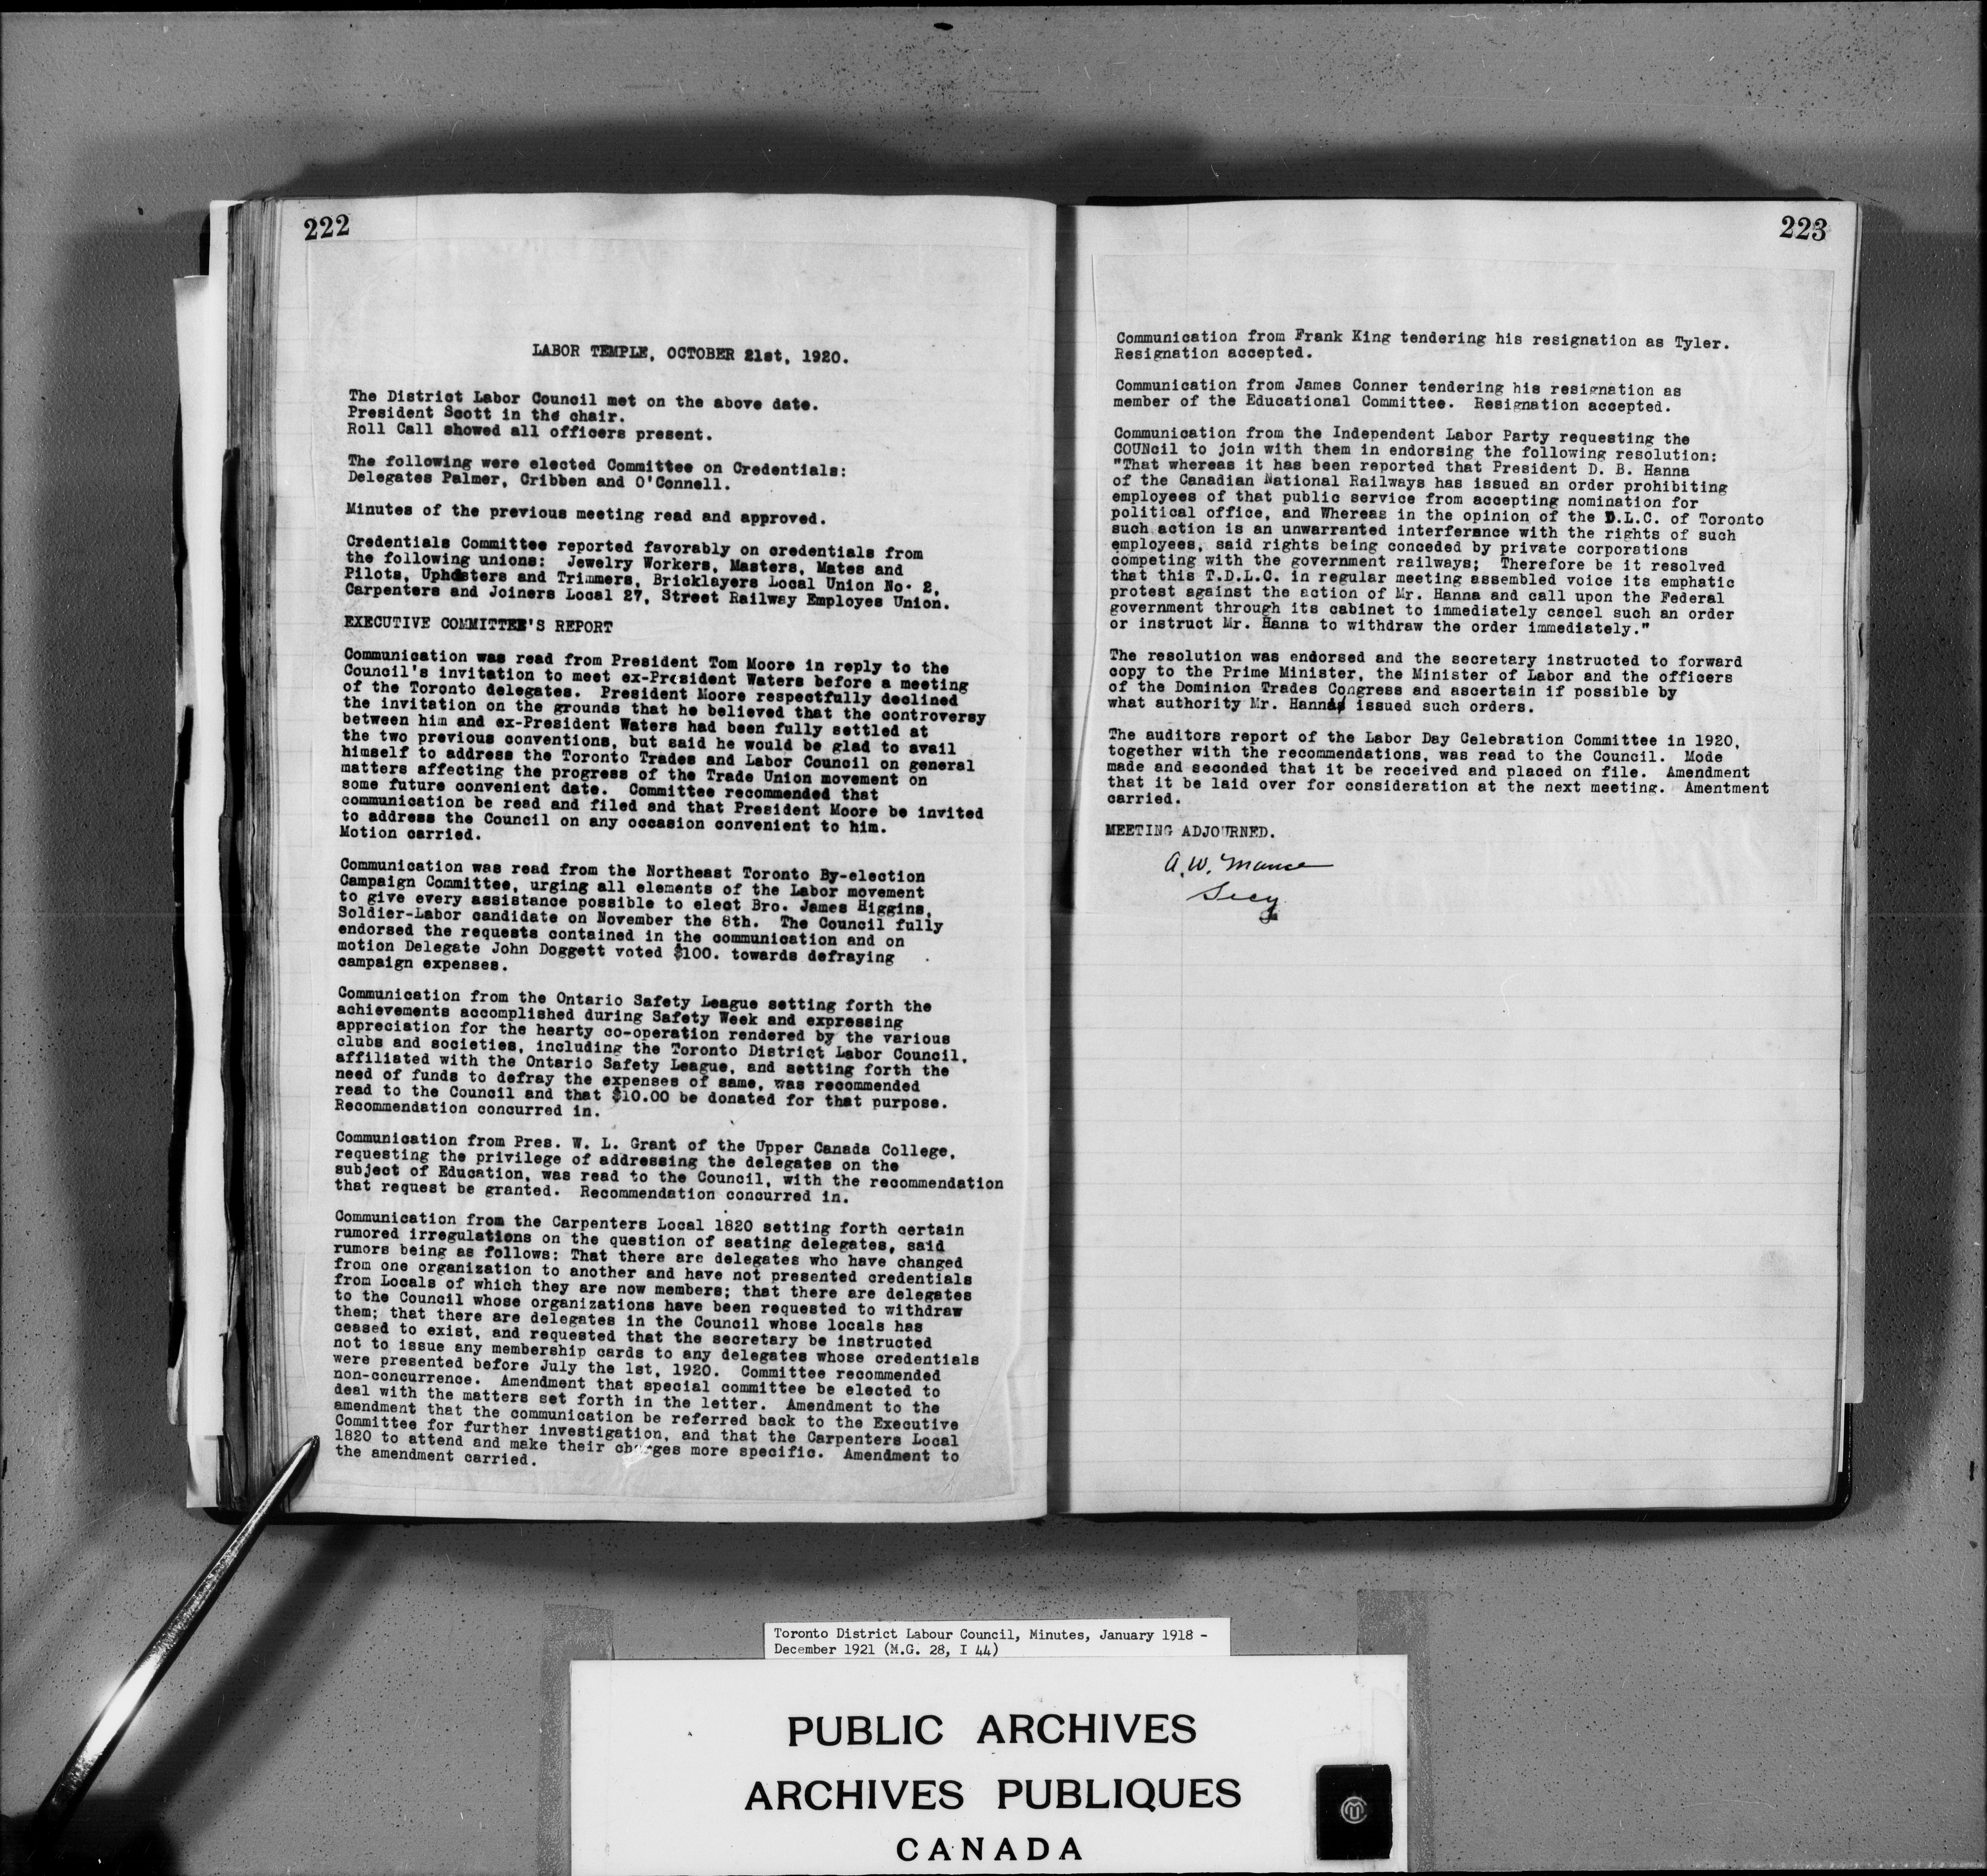 222
LABOR TEMPLE, OCTOBER 21st, 1920.
The District Labor Council met on the above date.
President Scott in the chair.
Roll Call showed all officers present.
The following were elected Committee on Credentials:
Delegates Palmer, Cribben and O'Connell.
Minutes of the previous meeting read and approved.
Credentials Committee reported favorably on credentials from
the following unions: Jewelry Workers, Masters, Mates and
Pilots, Uphosters and Trimmers, Bricklayers Local Union No. 2,
Carpenters and Joiners Local 27, Street Railway Employes Union.
EXECUTIVE COMMITTEE'S REPORT
Communication was read from President Tom Moore in reply to the
Council's invitation to meet ex-President Waters before a meeting
of the Toronto delegates. President Moore respectfully declined
the invitation on the grounds that he believed that the controversy
between him and ex-President Waters had been fully settled at
the two previous conventions, but said he would be glad to avail
himself to address the Toronto Trades and Labor Council on general
matters affecting the progress of the Trade Union movement on
some future convenient date. Committee recommended that
communication be read and filed and that President Moore be invited
to address the Council on any occasion convenient to him.
Motion carried.
Communication was read from the Northeast Toronto By-election
Campaign Committee, urging all elements of the Labor movement
to give every assistance possible to elect Bro. James Higgins,
Soldier-Labor candidate on November the 8th. The Council fully
endorsed the requests contained in the communication and on
motion Delegate John Doggett voted $100. towards defraying
campaign expenses.
Communication from the Ontario Safety League setting forth the
achievements accomplished during Safety Week and expressing
appreciation for the hearty co-operation rendered by the various
clubs and societies, including the Toronto District Labor Council,
affiliated with the Ontario Safety League, and setting forth the
need of funds to defray the expenses of same, was recommended
read to the Council and that $10.00 be donated for that purpose.
Recommendation concurred in.
Communication from Pres. W. L. Grant of the Upper Canada College,
requesting the privilege of addressing the delegates on the
subject of Education, was read to the Council, with the recommendation
that request be granted. Recommendation concurred in.
Communication from the Carpenters Local 1820 setting forth certain
rumored irregulations on the question of seating delegates, said
rumors being as follows: That there are delegates who have changed
from one organization to another and have not presented credentials
from Locals of which they are now members; that there are delegates
to the Council whose organizations have been requested to withdraw
them; that there are delegates in the Council whose locals has
ceased to exist, and requested that the secretary be instructed
not to issue any membership cards to any delegates whose credentials
were presented before July the 1st, 1920. Committee recommended
non-concurrence. Amendment that special committee be elected to
deal with the matters set forth in the letter. Amendment to the
amendment that the communication be referred back to the Executive
Committee for further investigation, and that the Carpenters Local
1820 to attend and make their charges more specific. Amendment to
the amendment carried.
223
Communication from Frank King tendering his resignation as Tyler.
Resignation accepted.
Communication from James Conner tendering his resignation as
member of the Educational Committee. Resignation accepted.
Communication from the Independent Labor Party requesting the
COUNcil to join with them in endorsing the following resolution:
"That whereas it has been reported that President D. B. Hanna
of the Canadian National Railways has issued an order prohibiting
employees of that public service from accepting nomination for
political office, and Whereas in the opinion of the D.L.C. of Toronto
such action is an unwarranted interferance with the rights of such
employees, said rights being conceded by private corporations
competing with the government railways; Therefore be it resolved
that this T.D.L.C. in regular meeting assembled voice its emphatic
protest against the action of Mr. Hanna and call upon the Federal
government through its cabinet to immediately cancel such an order
or instruct Mr. Hanna to withdraw the order immediately."
The resolution was endorsed and the secretary instructed to forward
copy to the Prime Minister, the Minister of Labor and the officers
of the Dominion Trades Congress and ascertain if possible by
what authority Mr. Hanna issued such orders.
The auditors report of the Labor Day Celebration Committee in 1920,
together with the recommendations, was read to the Council. Mode
made and seconded that it be received and placed on file. Amendment
that it be laid over for consideration at the next meeting. Amentment
carried.
MEETING ADJOURNED.
A. W. Mance
Secy
Toronto District Labour Council, Minutes, January 1918 -
December 1921 (M.G. 28, I 44)
PUBLIC ARCHIVES
ARCHIVES PUBLIQUES
CANADA